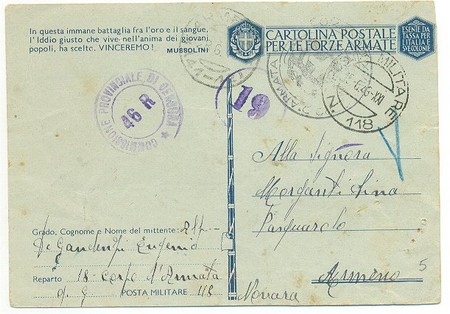 In questa immane battaglia fra l'oro e il sangue,
l'Iddio giusto che vive nell'anima dei giovani
popoli, ha scelto. VINCEREMO!
MUSSOLINI
CARTOLINA POSTALE
PER LE FORZE ARMATE
ESENTE DA
TASSA PER
L'ITALIA E
COLONIE
COMMISSIONE PROVINCIALE DI CENSURA
46 R
19
MILITARE
118
Alla Signora
Morganti Lina
Pasquarolo
Armeno
Novara
5
Grado, Cognome e Nome del mittente:
Eugenio
Reparto 18 - Corpo d'Armata
POSTA MILITARE 118